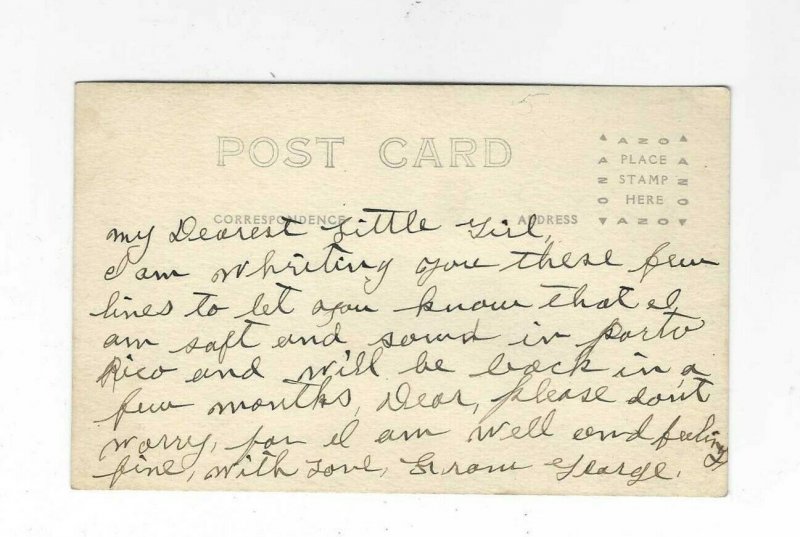 POST CARD
AZO
PLACE
STAMP
HERE
AZO
CORRESPONDENCE ADDRESS
my Dearest Little Girl,
I am whriting you these few
lines to let you know that I
am saft and sown in Porto
Rico and will be back in a
few months, Dear, please don't
worry, for I am well and feeling
fine, with Love, From George.